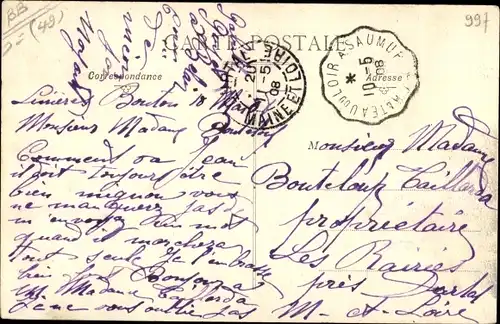 BB
(49)
997
CARTE POSTALE
Correspondance
Adresse
CHATEAU DU LOIR A SAUMUR
10-5
08
11-5
08
MAINE ET LOIRE
Linières Bouton 10 Mai
Monsieur Madame Bouteloup
Comment va Jean
il doit toujours être
bien mignon vous
ne manquerez pas
m'envoyer un mot
quand il marchera
tout seule je l'embrasse
bien Bonjour a
Madame Taillarda
je ne vous oublie pas
Monsieur Madame
Bouteloup Taillarda
propriétaire
Les Rairies
près Durtal
M-et-Loire